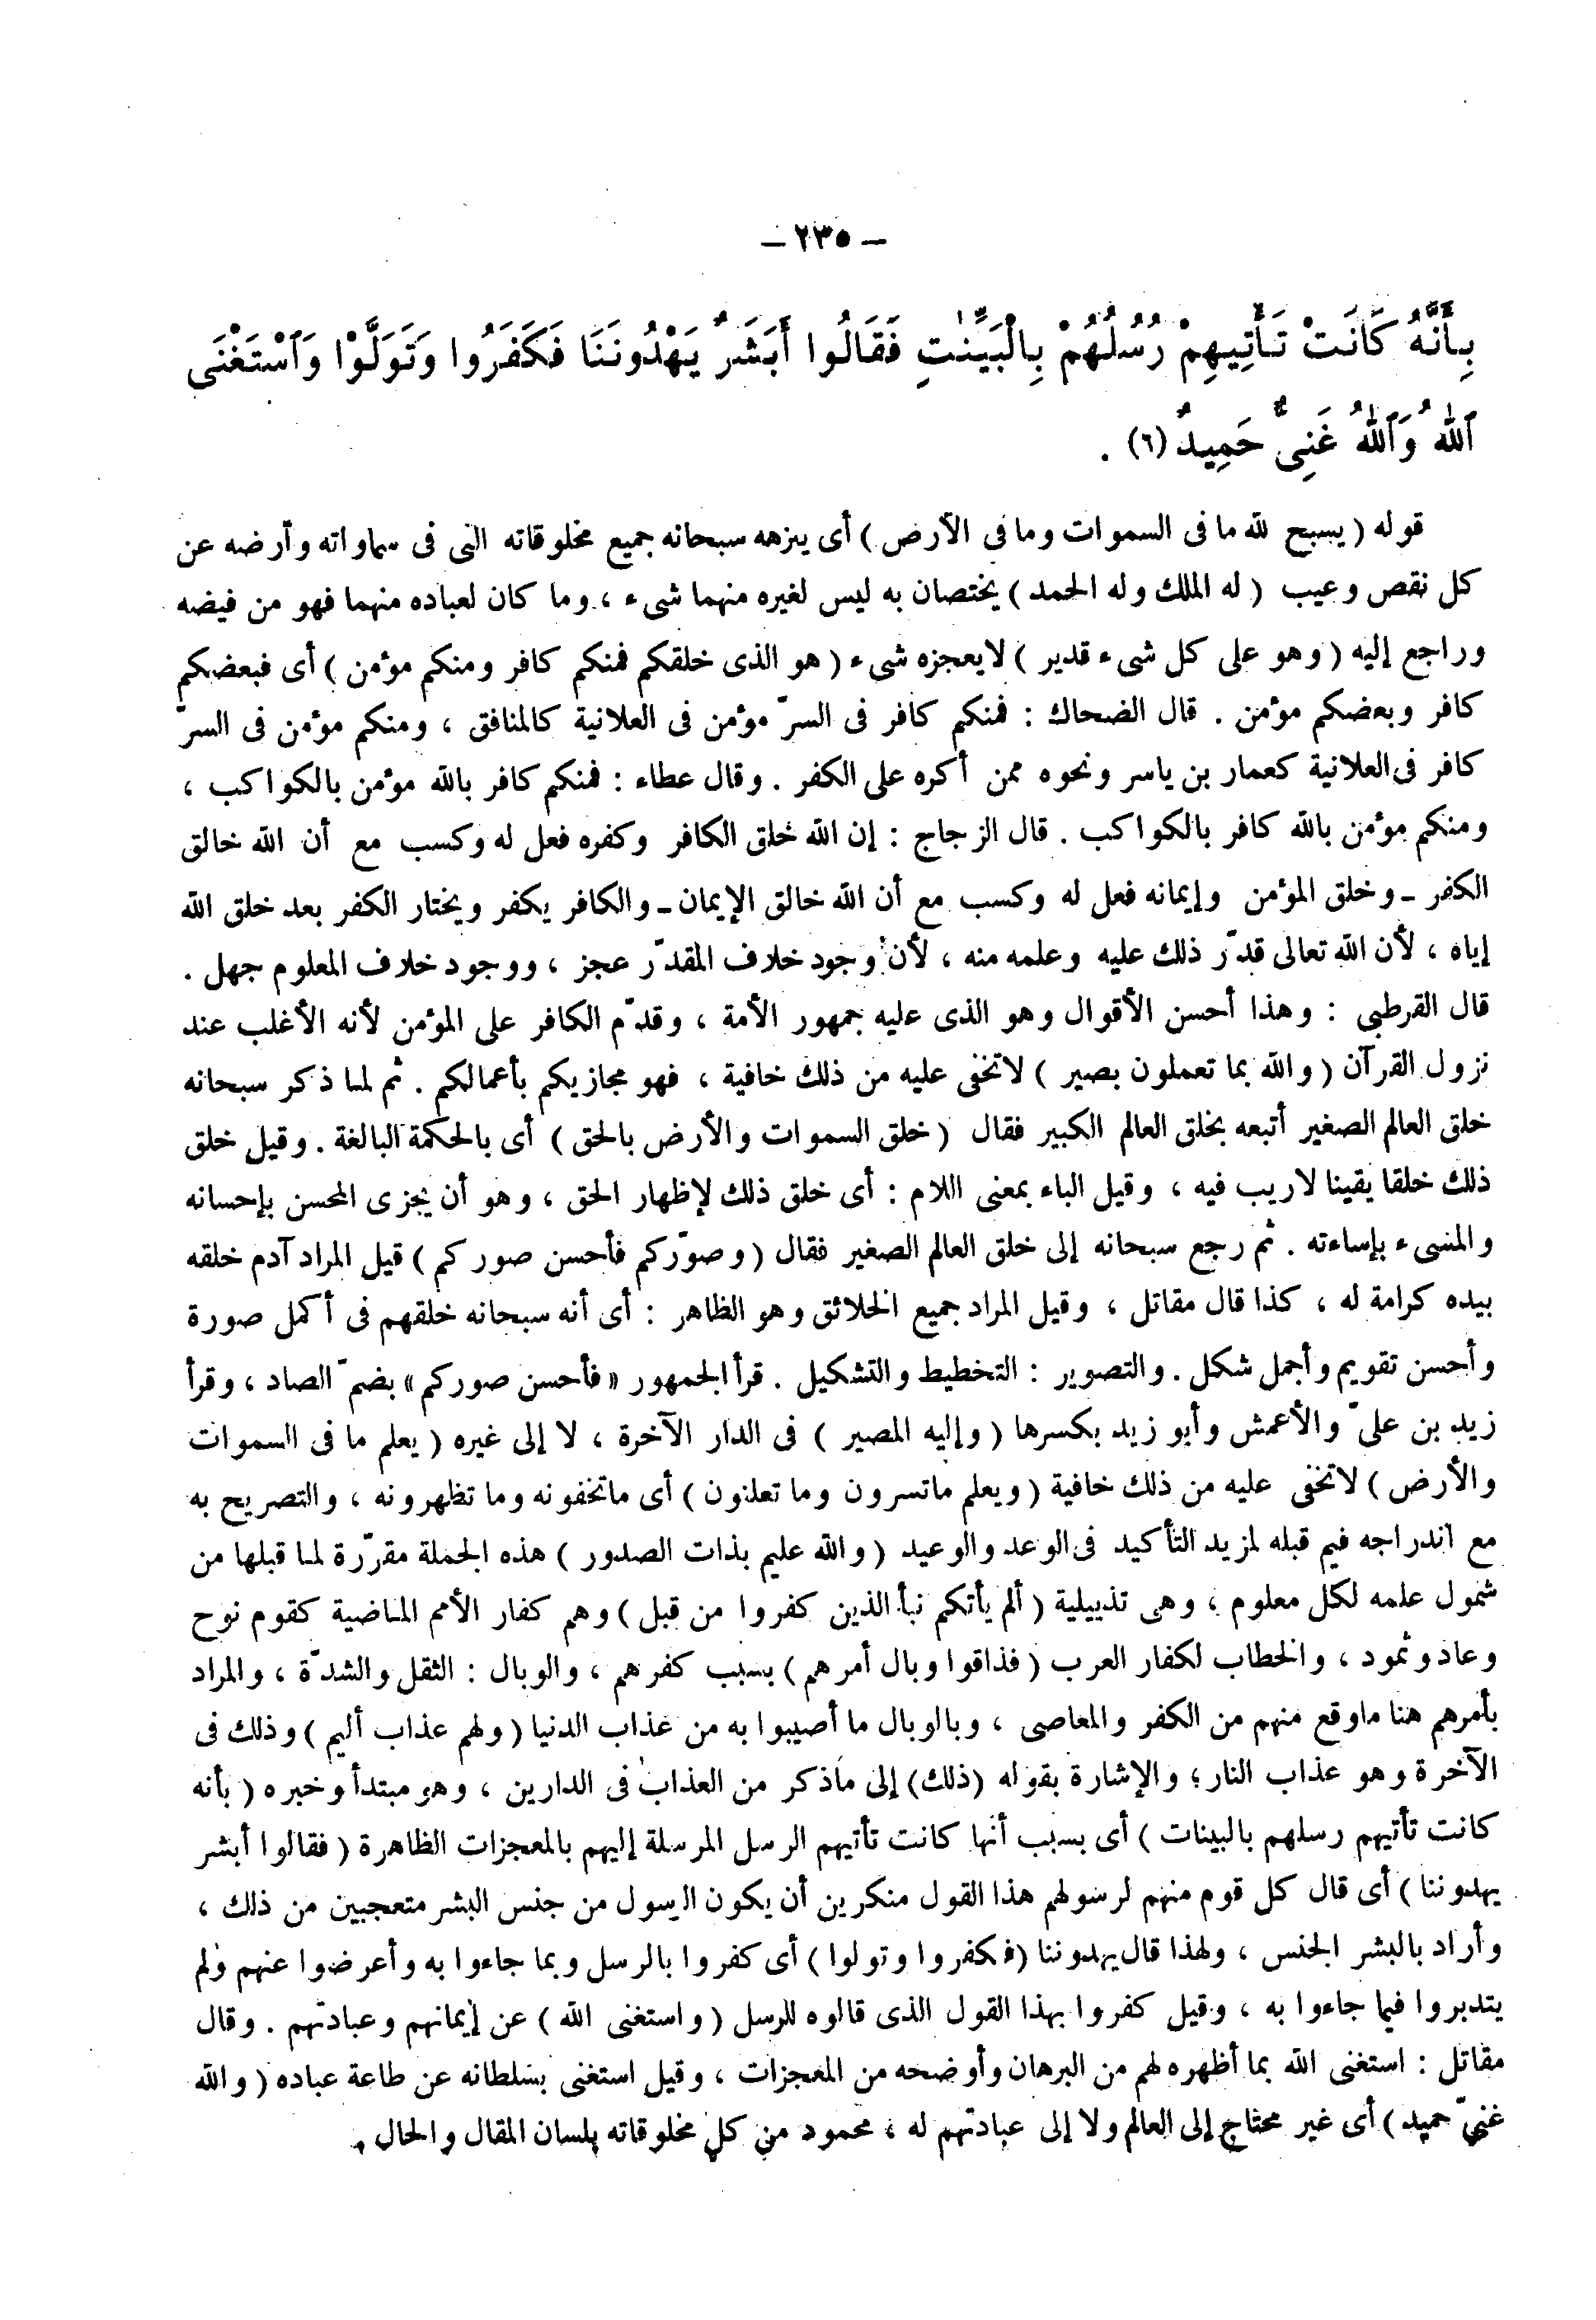 – ٢٣٥ –
بِأَنَّهُ كَانَتْ تَأْتِيهِمْ رُسُلُهُمْ بِالْبَيِّنَٰتِ فَقَالُوا أَبَشَرٌ يَهْدُونَنَا فَكَفَرُوا وَتَوَلَّوْا وَٱسْتَغْنَى
ٱللهُ وَٱللهُ غَنِىٌّ حَمِيدٌ (٦) .
قوله ( يسبح لله ما فى السموات وما فى الأرض ) أى ينزهه سبحانه جميع مخلوقاته التى فى سماواته وأرضه عن
كل نقص وعيب ( له الملك وله الحمد ) يختصان به ليس لغيره منهما شىء ، وما كان لعباده منهما فهو من فيضه
وراجع إليه ( وهو على كل شىء قدير ) لايعجزه شىء ( هو الذى خلقكم فمنكم كافر ومنكم مؤمن ) أى فبعضكم
كافر وبعضكم مؤمن . قال الضحاك : فمنكم كافر فى السرّ مؤمن فى العلانية كالمنافق ، ومنكم مؤمن فى السرّ
كافر فى العلانية كعمار بن ياسر ونحوه ممن أكره على الكفر . وقال عطاء : فمنكم كافر بالله مؤمن بالكواكب ،
ومنكم مؤمن بالله كافر بالكواكب . قال الزجاج : إن الله خلق الكافر وكفره فعل له وكسب مع أن الله خالق
الكفر ـ وخلق المؤمن وإيمانه فعل له وكسب مع أن الله خالق الإيمان ـ والكافر يكفر ويختار الكفر بعد خلق الله
إياه ، لأن الله تعالى قدّر ذلك عليه وعلمه منه ، لأن وجود خلاف المقدّر عجز ، ووجود خلاف المعلوم جهل .
قال القرطبى : وهذا أحسن الأقوال وهو الذى عليه جمهور الأمة ، وقدّم الكافر على المؤمن لأنه الأغلب عند
نزول القرآن ( والله بما تعملون بصير ) لاتخفى عليه من ذلك خافية ، فهو مجازيكم بأعمالكم . ثم لما ذكر سبحانه
خلق العالم الصغير أتبعه بخلق العالم الكبير فقال ( خلق السموات والأرض بالحق ) أى بالحكمة البالغة . وقيل خلق
ذلك خلقا يقينا لاريب فيه ، وقيل الباء بمعنى اللام : أى خلق ذلك لإظهار الحق ، وهو أن يجزى المحسن بإحسانه
والمسىء بإساءته . ثم رجع سبحانه إلى خلق العالم الصغير فقال ( وصوّركم فأحسن صوركم ) قيل المراد آدم خلقه
بيده كرامة له ، كذا قال مقاتل ، وقيل المراد جميع الخلائق وهو الظاهر : أى أنه سبحانه خلقهم فى أكمل صورة
وأحسن تقويم وأجمل شكل . والتصوير : التخطيط والتشكيل . قرأ الجمهور « فأحسن صوركم » بضمّ الصاد ، وقرأ
زيد بن علىّ والأعمش وأبو زيد بكسرها ( وإليه المصير ) فى الدار الآخرة ، لا إلى غيره ( يعلم ما فى السموات
والأرض ) لاتخفى عليه من ذلك خافية ( ويعلم ماتسرون وما تعلنون ) أى ماتخفونه وما تظهرونه ، والتصريح به
مع اندراجه فيم قبله لمزيد التأكيد فى الوعد والوعيد ( والله عليم بذات الصدور ) هذه الجملة مقرّرة لما قبلها من
شمول علمه لكل معلوم ، وهى تذييلية ( ألم يأتكم نبأ الذين كفروا من قبل ) وهم كفار الأمم الماضية كقوم نوح
وعاد وثمود ، والخطاب لكفار العرب ( فذاقوا وبال أمرهم ) بسبب كفرهم ، والوبال : الثقل والشدّة ، والمراد
بأمرهم هنا ماوقع منهم من الكفر والمعاصى ، وبالوبال ما أصيبوا به من عذاب الدنيا ( ولهم عذاب أليم ) وذلك فى
الآخرة وهو عذاب النار ؛ والإشارة بقوله (ذلك) إلى ماذكر من العذاب فى الدارين ، وهو مبتدأ وخبره ( بأنه
كانت تأتيهم رسلهم بالبينات ) أى بسبب أنها كانت تأتيهم الرسل المرسلة إليهم بالمعجزات الظاهرة ( فقالوا أبشر
يهدوننا ) أى قال كل قوم منهم لرسولهم هذا القول منكرين أن يكون الرسول من جنس البشر متعجبين من ذلك ،
وأراد بالبشر الجنس ، ولهذا قال يهدوننا (فكفروا وتولوا ) أى كفروا بالرسل وبما جاءوا به وأعرضوا عنهم ولم
يتدبروا فيما جاءوا به ، وقيل كفروا بهذا القول الذى قالوه للرسل ( واستغنى الله ) عن إيمانهم وعبادتهم . وقال
مقاتل : استغنى الله بما أظهره لهم من البرهان وأوضحه من المعجزات ، وقيل استغنى بسلطانه عن طاعة عباده ( والله
غنىّ حميد ) أى غير محتاج إلى العالم ولا إلى عبادتهم له ، محمود من كل مخلوقاته بلسان المقال والحال .